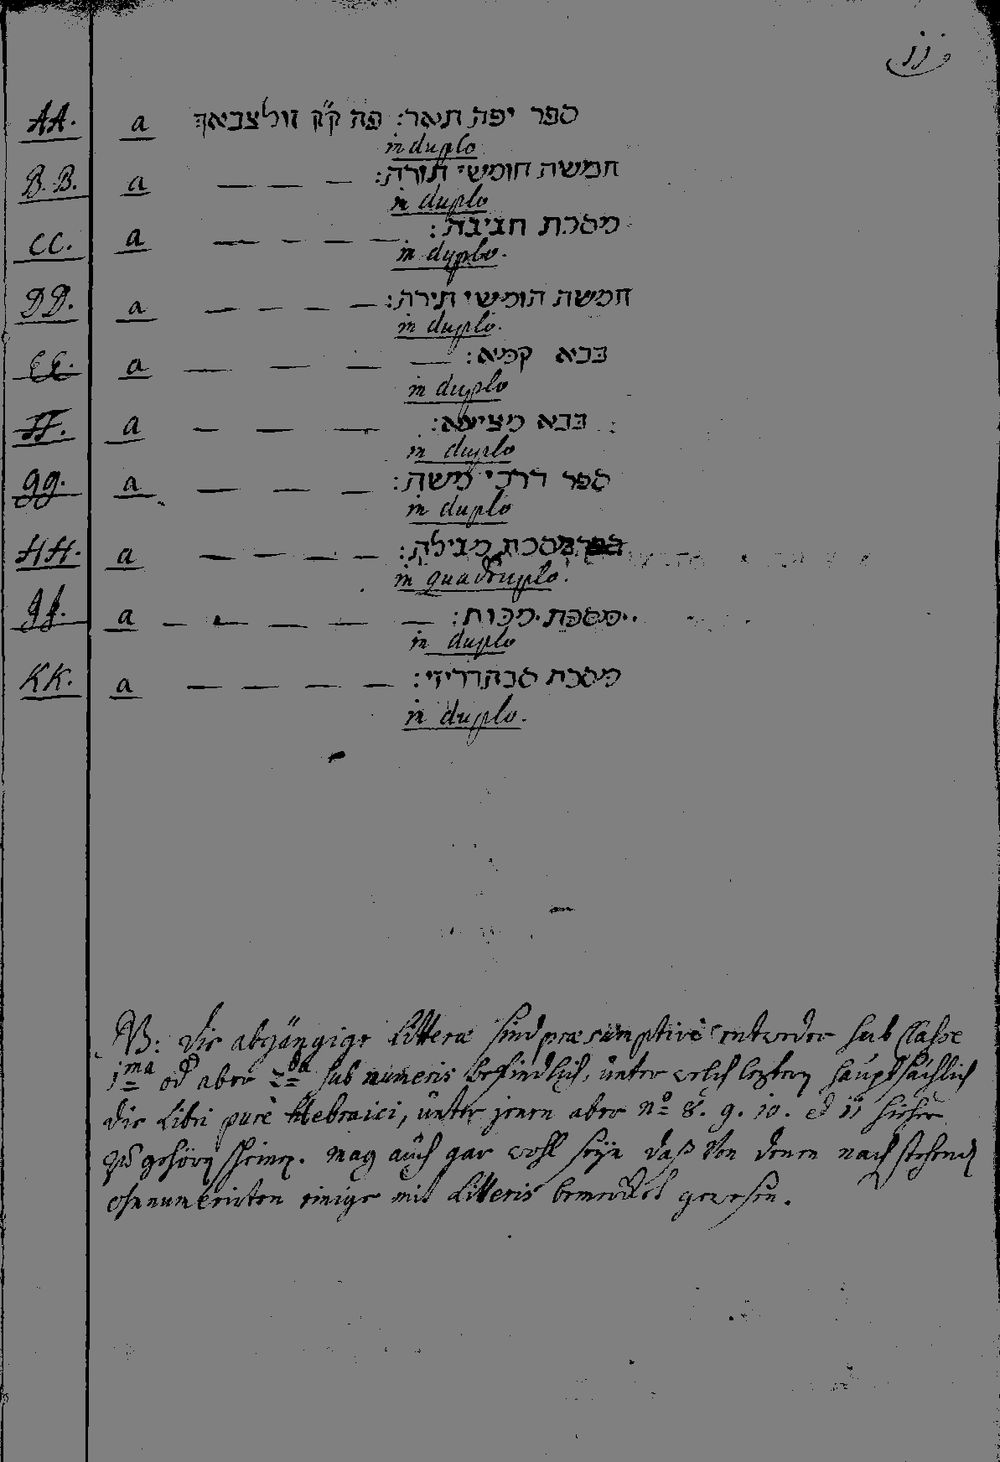 11
AA. a ספר יפה תואר: פה ק"ק זולצבאך
in duplo
B.B. a — — — חמשה חומשי תורה:
in duplo
CC. a — — — — מסכת חגיגה:
in duplo.
DD. a — — — — חמשה חומשי תורה:
in duplo.
EE. a — — — — בבא קמא:
in duplo
FF. a — — — בבא מציעא:
in duplo
gg. a — — — ספר דרכי משה:
in duplo
HH. a — — — — מסכת מגילה:
in quadruplo.
JJ. a — — — — — מסכת מכות:
in duplo
KK. a — — — — מסכת סנהדרין:
in duplo.
NB: die abgängige Litteræ sind præsumptivè entweder sub Classe
1ma od aber 2da sub numeris befindlich, unter welch leztern hauptsächlich
die Libri purè Hebraici, unter jenen aber No 8. 9. 10. et 11 hieher
zu gehörn scheinen. mag auch gar wohl seyn daß von denen nachstehend
ohnnumerirten einige mit Litteris bemerket gewesen.